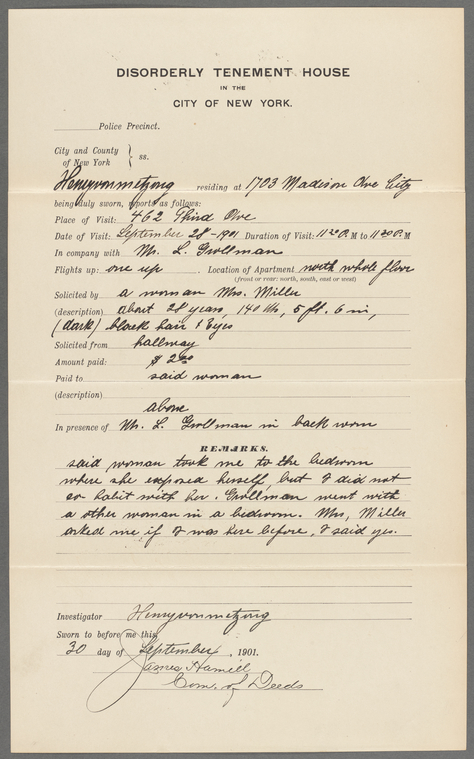 DISORDERLY TENEMENT HOUSE
IN THE
CITY OF NEW YORK.
Police Precinct.
City and County
of New York } ss.
Henry von metzong residing at 1703 Madison Ave City
being duly sworn, reports as follows:
Place of Visit: 462 Third Ave
Date of Visit: September 28 - 1901 Duration of Visit: 11 P. M to 11 30 P. M
In company with Mr. L. Grollman
Flights up: one up. Location of Apartment north whole floor
(front or rear: north, south, east or west)
Solicited by a woman Mrs. Miller
(description) about 28 years, 140 lbs, 5 ft. 6 in,
(dark) black hair & Eyes
Solicited from hallway
Amount paid: $ 2.00
Paid to said woman
(description)
above
In presence of Mr. L. Grollman in back room
REMARKS.
said woman took me to the bedroom
where she exposed herself, but I did not
co habit with her. Grollman went with
a other woman in a bedroom. Mrs, Miller
asked me if I was here before, I said yes.
Investigator Henry von metzong
Sworn to before me this
30 day of September, 1901.
James Hamill
Com. of Deeds